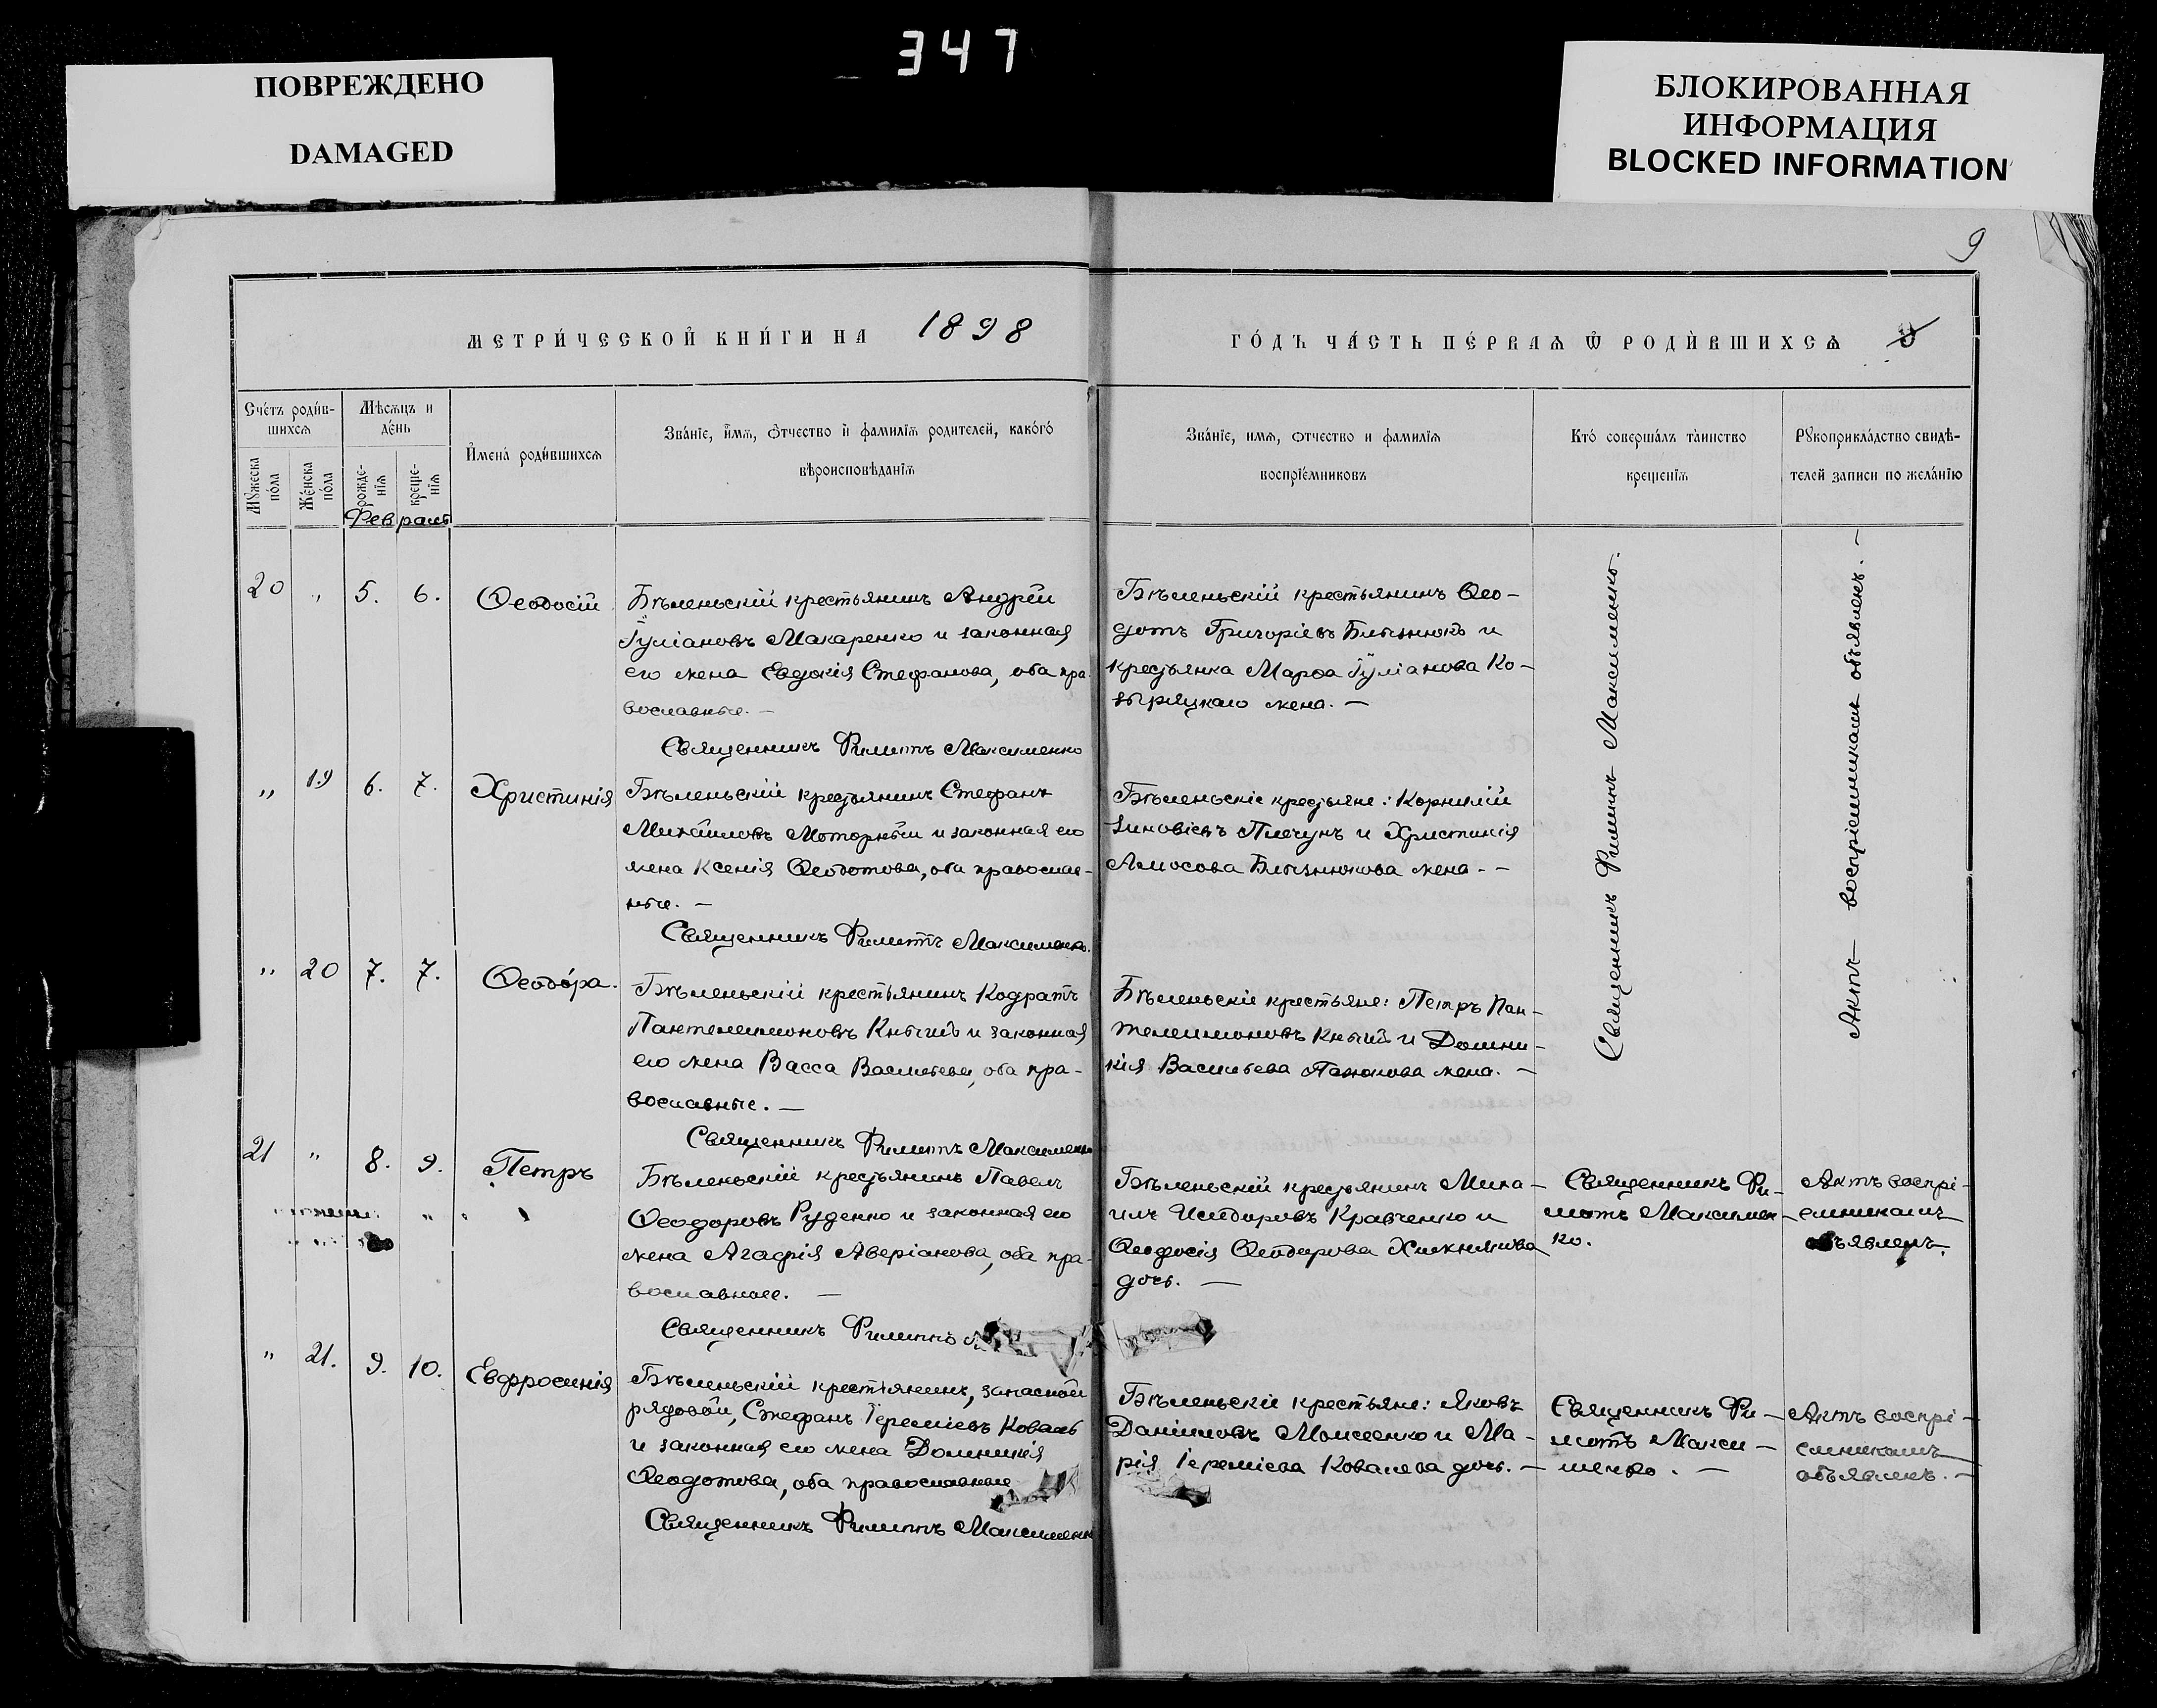 347
ПОВРЕЖДЕНО
DAMAGED
БЛОКИРОВАННАЯ
ИНФОРМАЦИЯ
BLOCKED INFORMATION
9
МЕТРИ́ЧЕСКОЙ КНИ́ГИ НА 1898
ГО́ДЪ ЧА́СТЬ ПЕ́РВАѦ Ѿ РОДИ́ВШИХСѦ
Сче́тъ роди́в-
шихсѧ
Мѣсѧцъ и
де́нь
И҆мена̀ роди́вшихсѧ
Зва́нїе, и҆́мѧ, ѻ҆́тчество и҆ фамилїѧ родителей, како́гѡ
вѣроисповѣданїѧ
Мꙋжеска
по́ла
Же́нска
по́ла
рожде-
нїѧ
креще-
нїѧ
Зва́нїе, имѧ, отчество и фамилїѧ
воспрїе́мниковъ
Кто́ соверша́лъ та̀инство
крещенїѧ
Рꙋкоприкла́дство свидѣ-
телей записи по жела́нїю
Февраль
20 „ 5. 6. Ѳеодосій
Бѣленьскій крестьянинъ Андрей
Іуліановъ Макаренко и законная
его жена Евдокія Стефанова, оба пра-
вославные. —
Священникъ Филиппъ Максименко
Бѣленьскій крестьянинъ Ѳео-
дотъ Григоріевъ Близнюкъ и
крестьянка Марѳа Іуліанова Ко-
зыряцкаго жена. —
„ 19 6. 7. Христинія
Бѣленьскій крестьянинъ Стефанъ
Михайловъ Моторный и законная его
жена Ксенія Ѳеодотова, оба православ-
ные. —
Священникъ Филиппъ Максименко.
Бѣленьскіе крестьяне: Корнилій
Зиновіевъ Плечунъ и Христинія
Амосова Близнюкова жена. —
„ 20 7. 7. Ѳеодо́ра.
Бѣленьскій крестьянинъ Кодратъ
Пантелеимоновъ Кнышъ и законная
его жена Васса Васильева, оба пра-
вославные. —
Священникъ Филиппъ Максименко
Бѣленьскіе крестьяне: Петръ Пан-
телеимоновъ Кнышъ и Домни-
кія Васильева жена. —
Священникъ Филиппъ Максименко.
Актъ воспріемникамъ объявленъ. —
21 „ 8. 9. Петръ
Бѣленьскій крестьянинъ Павелъ
Ѳеодоровъ Руденко и законная его
жена Агафія Аверіанова, оба пра-
вославные. —
Священникъ Филиппъ
Бѣленьскій крестьянинъ Миха-
илъ Исидоровъ Кравченко и
Ѳеодосія Ѳеодорова
дочь. —
Священникъ Фи-
липпъ Максимен-
ко.
Актъ воспрі-
емникамъ
объявленъ.
„ 21. 9. 10. Евфросинія
Бѣленьскій крестьянинъ, запасной
рядовой, Стефанъ Іереміевъ Коваль
и законная его жена Домникія
Ѳеодотова, оба православные
Священникъ Филиппъ Максименко
Бѣленьскіе крестьяне: Яковъ
Даніиловъ Моисеенко и Ма-
рія Іереміева Ковалева дочь. —
Священникъ Фи-
липпъ Макси-
менко. —
Актъ воспрі-
емникамъ
объявленъ. —